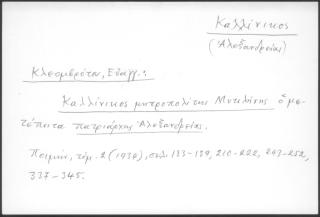 Καλλίνικος
(Ἀλεξανδρείας)
Κλεομβρότου, Εὐαγγ.:
Καλλίνικος μητροπολίτης Μυτιλήνης ὁ με-
τέπειτα πατριάρχης Ἀλεξανδρείας.
Ποιμήν, τόμ. 2 (1934), σελ. 133-139, 210-222, 243-252,
337-345.